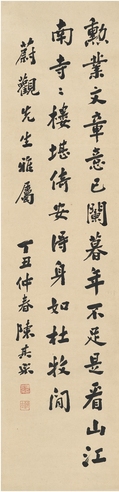 勲業文章意已闌暮年不足是看山江
南寺〻樓堪倚安得身如杜牧閒
蔚觀先生雅屬
丁丑仲春陳